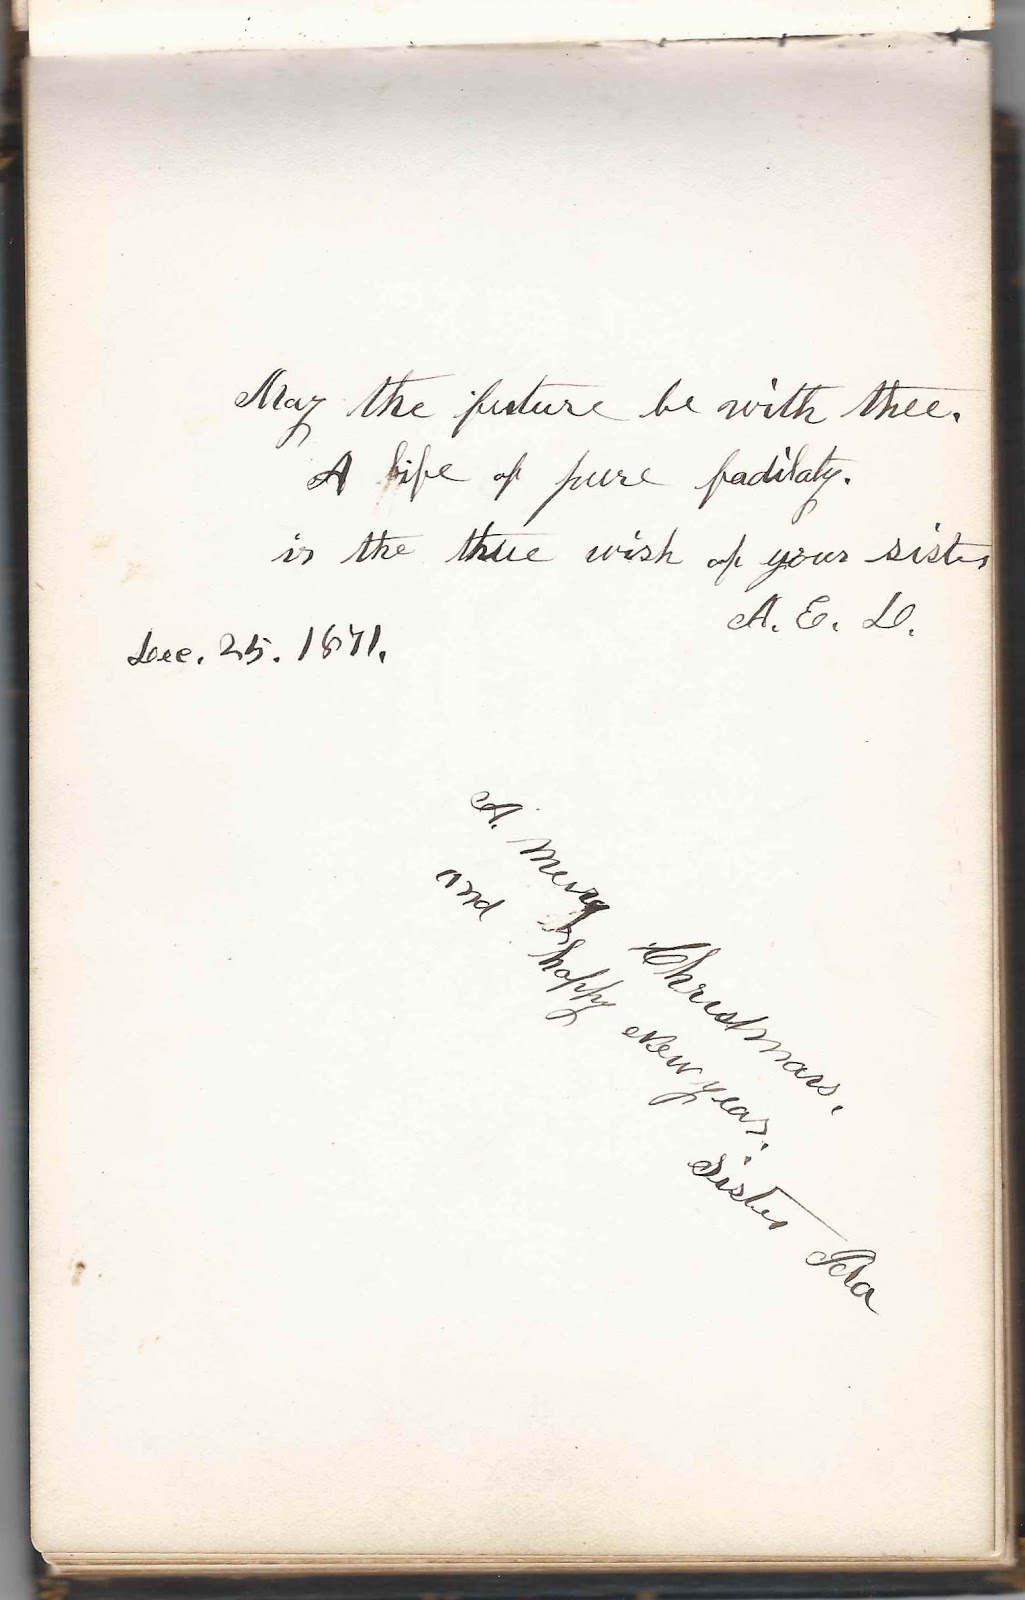 May the future be with thee.
A life of pure fadilaty.
is the true wish of your sister
A. E. D.
Dec. 25. 1871.
A. Merry Christmas.
and happy New year.
Sister Ida